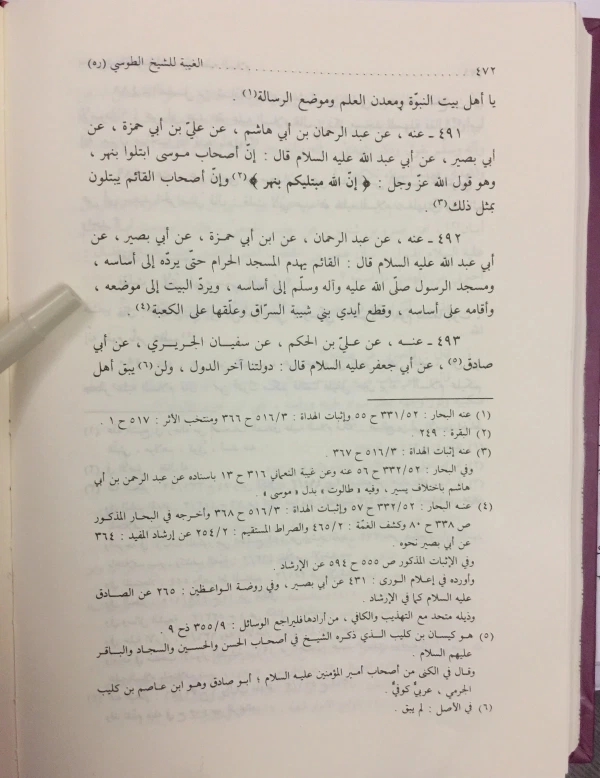 ٤٧٢ . . . . . . . . . . . . . . . . . . . . . . . . . . . . . . الغيبة للشيخ الطوسي (ره)
يا أهل بيت النبوّة ومعدن العلم وموضع الرسالة(١) .
٤٩١ ـ عنه ، عن عبد الرحمان بن أبي هاشم ، عن عليّ بن أبي حمزة ، عن
أبي بصير ، عن أبي عبد الله عليه السلام قال : إنّ أصحاب موسى ابتلوا بنهر ،
وهو قول الله عزّ وجل : ﴿ إنّ الله مبتليكم بنهر ﴾(٢) وإنّ أصحاب القائم يبتلون
بمثل ذلك(٣) .
٤٩٢ ـ عنه ، عن عبد الرحمان ، عن ابن أبي حمزة ، عن أبي بصير ، عن
أبي عبد الله عليه السلام قال : القائم يهدم المسجد الحرام حتّى يردّه إلى أساسه ،
ومسجد الرسول صلّى الله عليه وآله وسلّم إلى أساسه ، ويردّ البيت إلى موضعه ،
وأقامه على أساسه ، وقطع أيدي بني شيبة السرّاق وعلّقها على الكعبة(٤) .
٤٩٣ ـ عنه ، عن عليّ بن الحكم ، عن سفيان الجريري ، عن أبي
صادق(٥) ، عن أبي جعفر عليه السلام قال : دولتنا آخر الدول ، ولن(٦) يبق أهل
(١) عنه البحار : ٣٣١/٥٢ ح ٥٥ وإثبات الهداة : ٥١٦/٣ ح ٣٦٦ ومنتخب الأثر : ٥١٧ ح ١ .
(٢) البقرة : ٢٤٩ .
(٣) عنه إثبات الهداة : ٥١٦/٣ ح ٣٦٧ .
وفي البحار : ٣٣٢/٥٢ ح ٥٦ عنه وعن غيبة النعماني ٣١٦ ح ١٣ باسناده عن عبد الرحمن بن أبي
هاشم باختلاف يسير ، وفيه « طالوت » بدل « موسى » .
(٤) عنه البحار : ٣٣٢/٥٢ ح ٥٧ وإثبات الهداة : ٥١٦/٣ ح ٣٦٨ وأخرجه في البحار المذكور
ص ٣٣٨ ح ٨٠ وكشف الغمّة : ٤٦٥/٢ والصراط المستقيم : ٢٥٤/٢ عن إرشاد المفيد : ٣٦٤
عن أبي بصير نحوه .
وفي الإثبات المذكور ص ٥٥٥ ح ٥٩٤ عن الإرشاد .
وأورده في إعلام الورى : ٤٣١ عن أبي بصير ، وفي روضة الواعظين : ٢٦٥ عن الصادق
عليه السلام كما في الإرشاد .
وذيله متحد مع التهذيب والكافي ، من أرادها فليراجع الوسائل : ٣٥٥/٩ ذح ٩ .
(٥) هو كيسان بن كليب الذي ذكره الشيخ في أصحاب الحسن والحسين والسجاد والباقر
عليهم السلام .
وقال في الكنى من أصحاب أمير المؤمنين عليه السلام ؛ أبو صادق وهو ابن عاصم بن كليب
الجرمي ، عربيٌّ كوفيٌّ .
(٦) في الأصل : لم يبق .